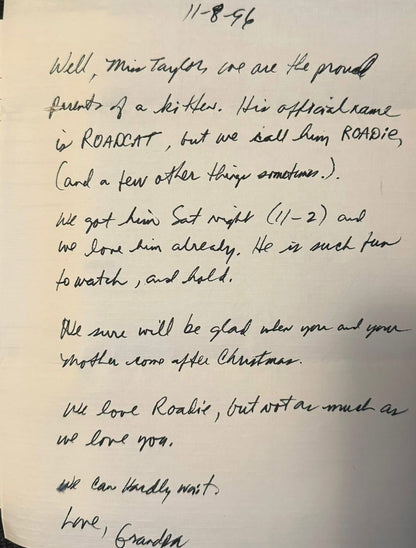 11-8-96
Well, Miss Taylor, we are the proud
parents of a kitten. His official name
is ROADCAT, but we call him ROADie,
(and a few other things sometimes.).
We got him Sat night (11-2) and
we love him already. He is such fun
to watch, and hold.
We sure will be glad when you and your
mother come after Christmas.
We love Roadie, but not as much as
we love you.
We can hardly wait.
Love, Grandpa